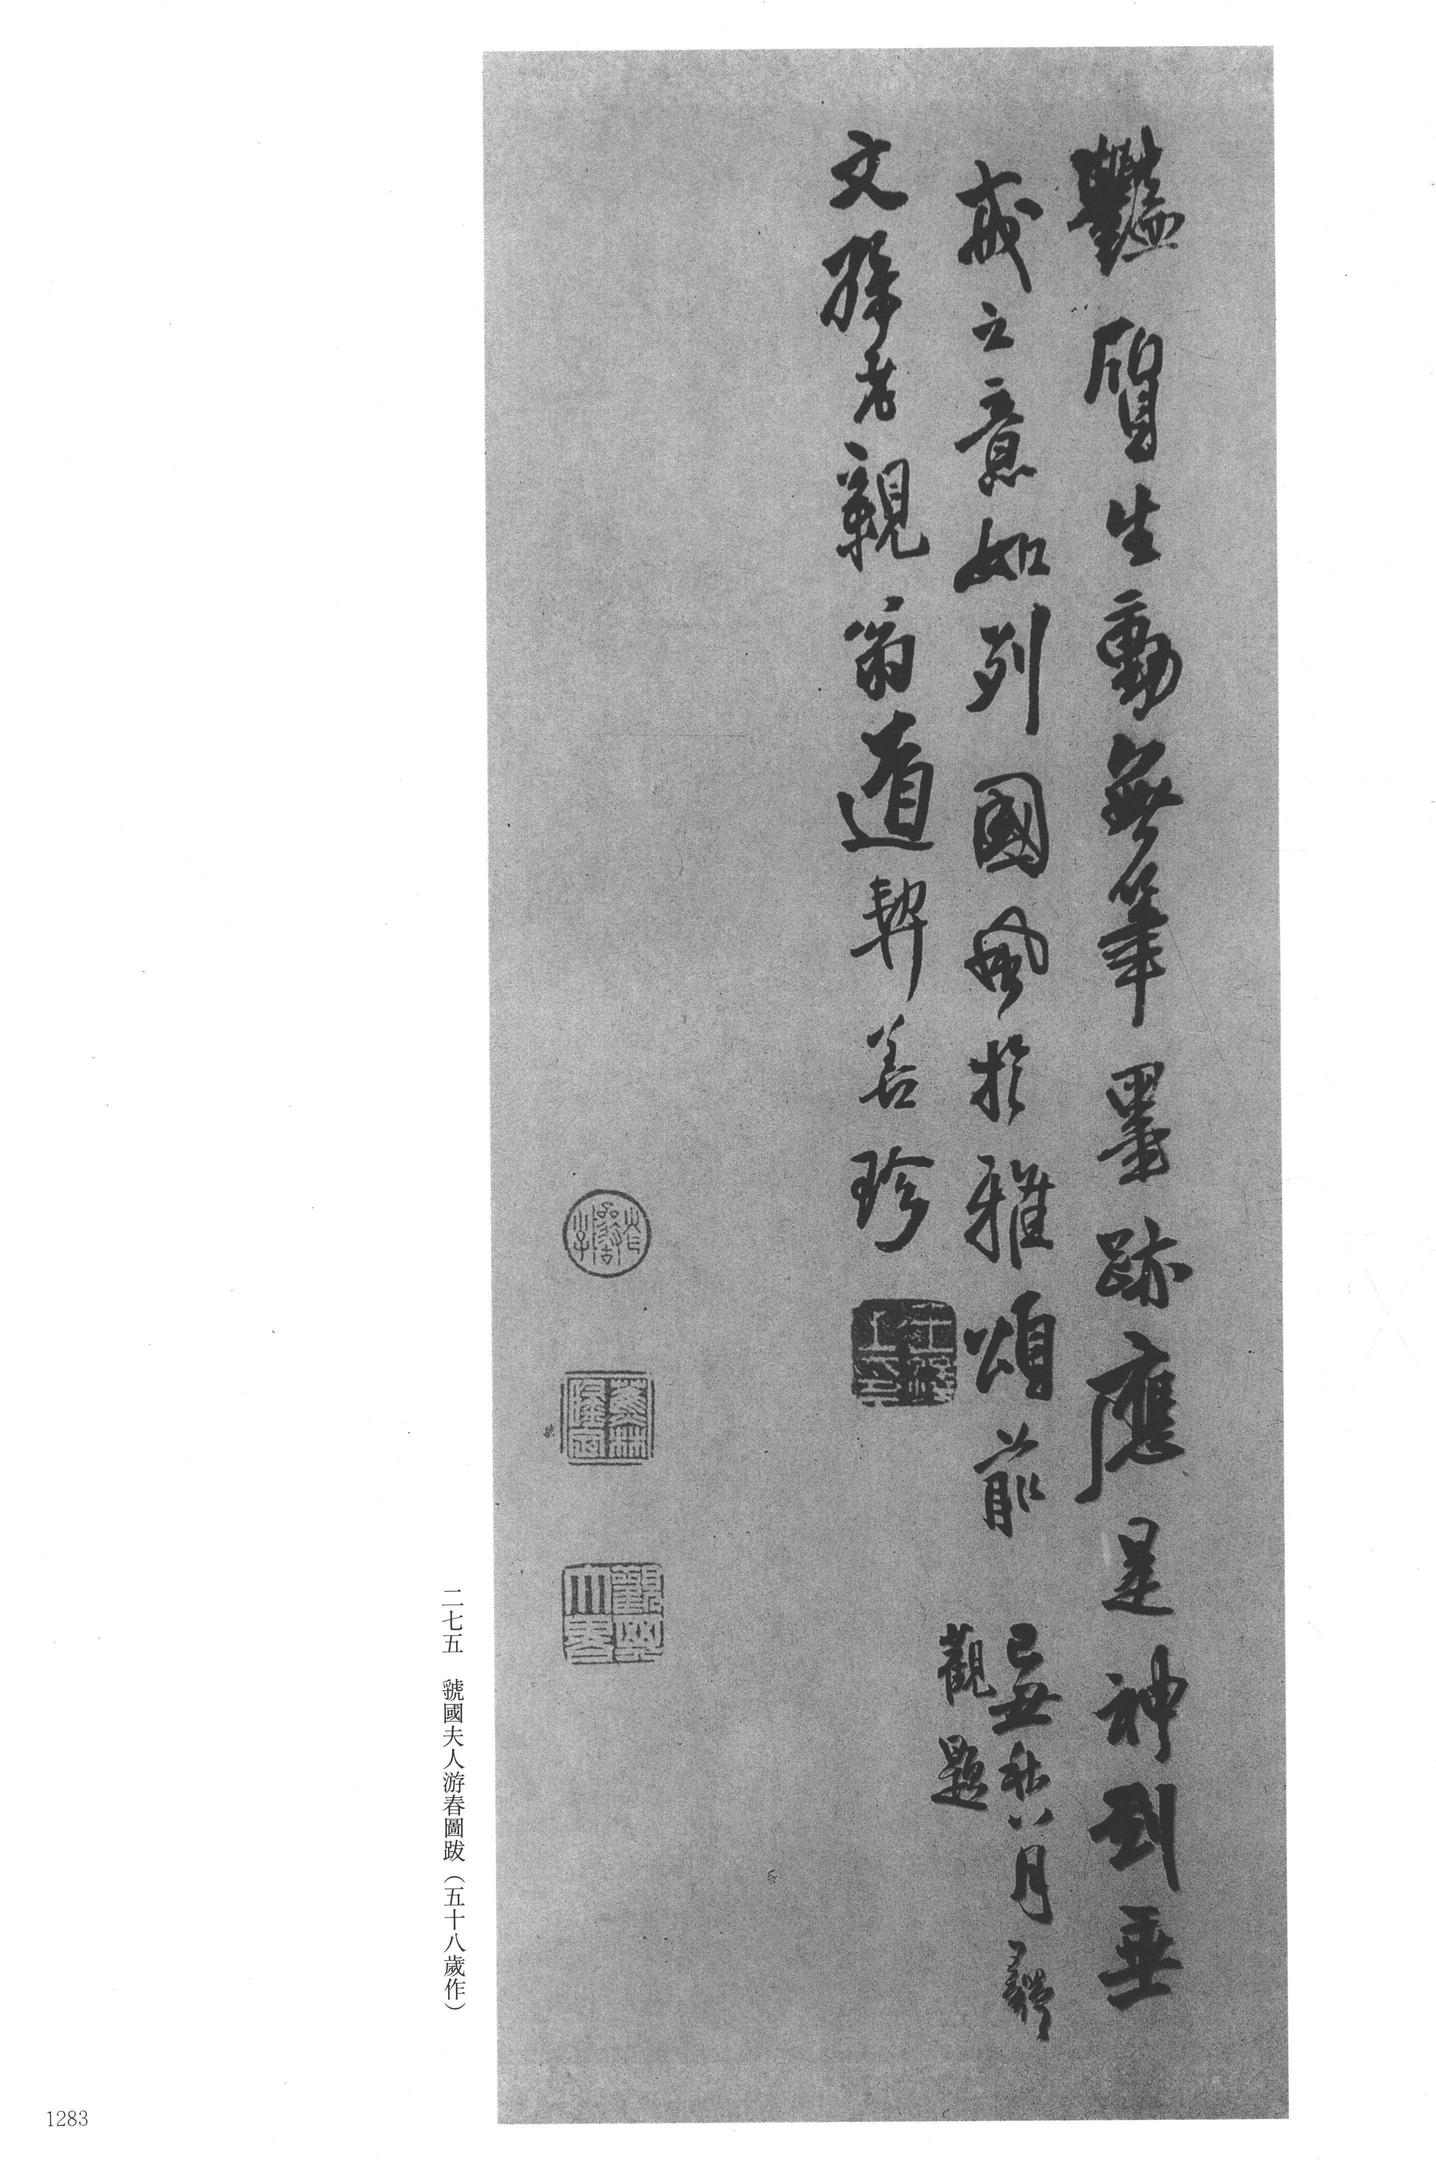 豔質生動無筆墨跡應是神到垂
戒之意如列國風於雅頌前
己丑秋八月
觀題
文孫老親翁道契善珍
二七五　虢國夫人游春圖跋（五十八歲作）
1283